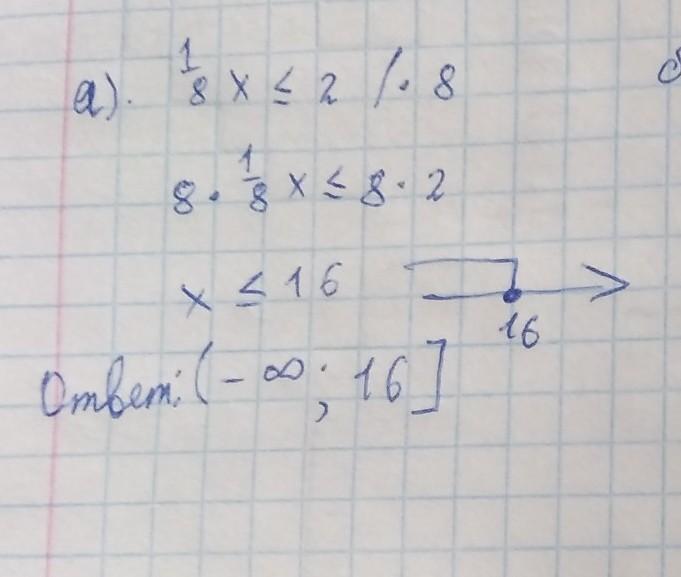 а). 1/8 x ≤ 2 /· 8
8 · 1/8 x ≤ 8 · 2
x ≤ 16
16
Ответ: (- ∞; 16]